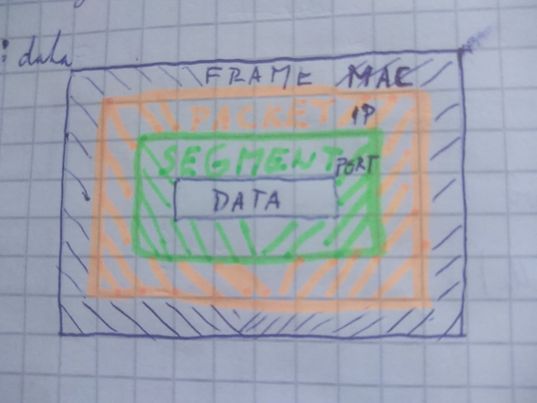 : data
FRAME MAC
PACKET IP
SEGMENT PORT
DATA